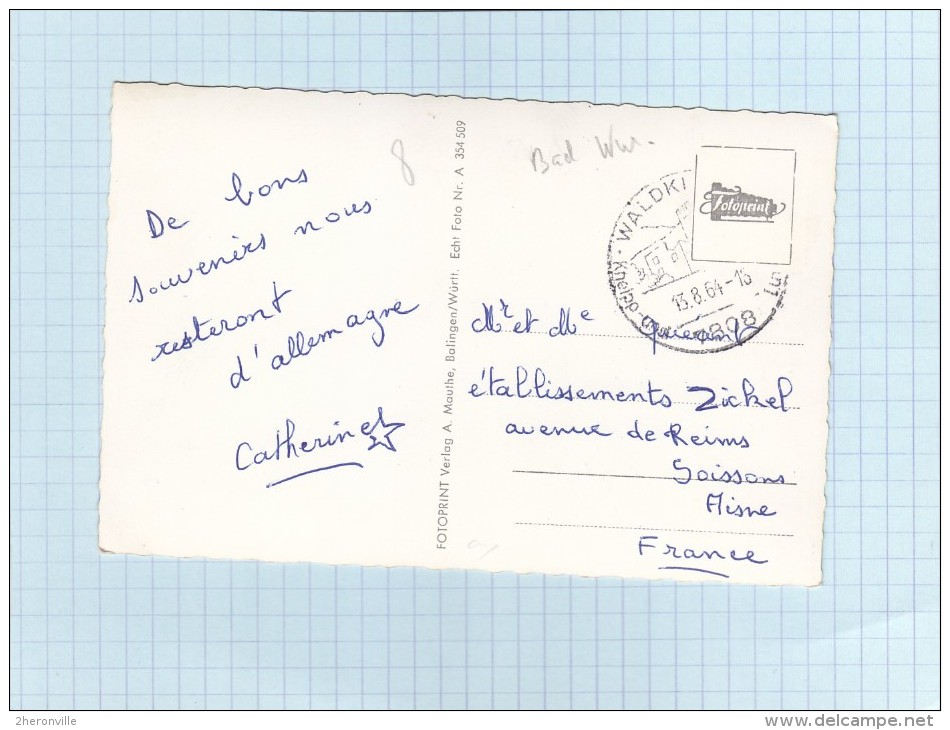 De bons
souvenirs nous
resteront
d'allemagne
Catherine
8
FOTOPRINT Verlag A. Mauthe, Balingen/Württ. Echt Foto Nr. A 354 509
Bad
WALDKI
Kneipp-
13.8.64-15
7808
Fotoprint
Mr et Me
établissements Zickel
avenue de Reims
Soissons
Aisne
France
2heronville
www.delcampe.net